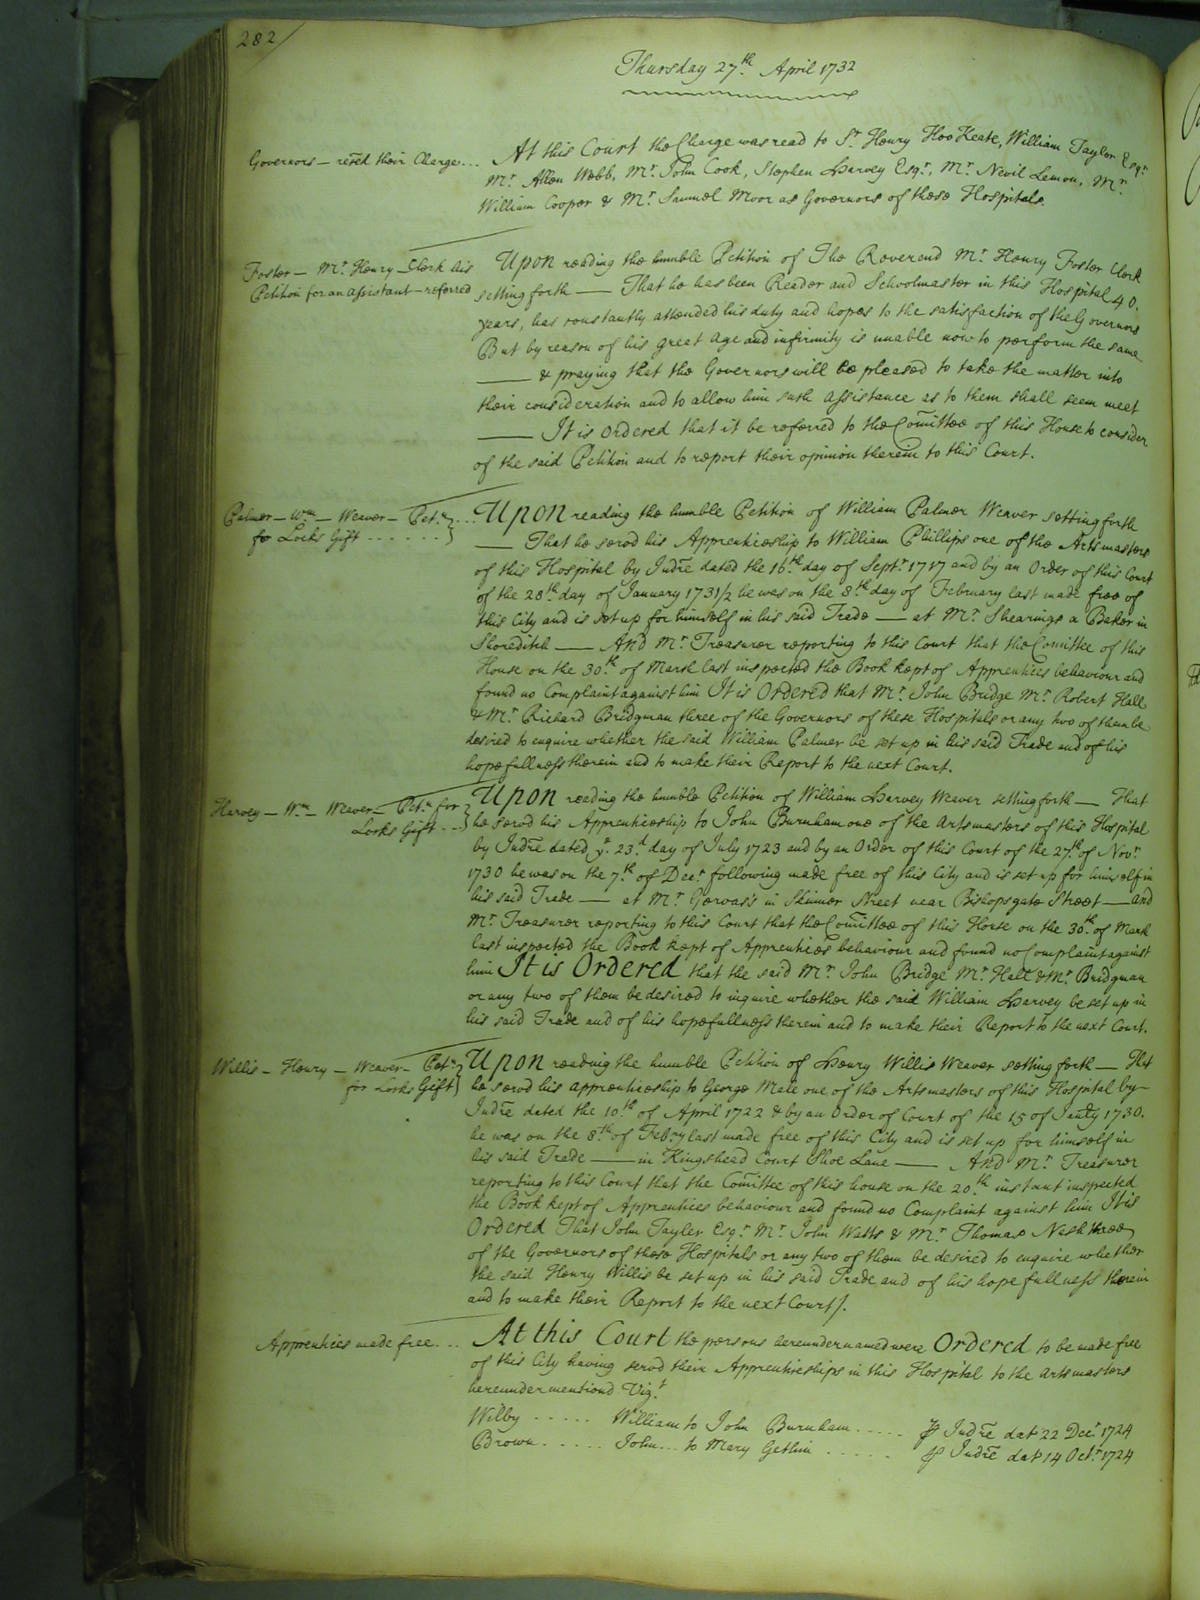 282
Thursday 27th April 1732
Governors - reced their Charge... At this Court the Charge was read to Sr. Henry Hoo Keate, William Taylor Esqr.
Mr. Allen Webb, Mr. John Cook, Stephen Harvey Esqr., Mr. Nevil Lemon, Mr.
William Cooper & Mr. Samuel Moor as Governors of these Hospitals.
Foster - Mr. Henry - Clerk his Upon reading the humble Petition of The Reverend Mr. Henry Foster Clerk
Petition for an assistant - referred setting forth — That he has been Reader and Schoolmaster in this Hospital 40.
years, has constantly attended his duty and hopes to the satisfaction of the Governors
But by reason of his great age and infirmity is unable now to perform the same
— & praying that the Governors will be pleased to take the matter into
their consideration and to allow him such assistance as to them shall seem meet
— It is Ordered that it be referred to the Comittee of this House to consider
of the said Petition and to report their opinion therein to this Court.
Palmer - Wm. - Weaver - Petn. } ... Upon reading the humble Petition of William Palmer Weaver setting forth
fo Locks Gift ...... } — That he serod his Apprenticeship to William Phillips one of the Artsmasters
of this Hospital by Indre dated the 16th. day of Septr. 1717 and by an Order of this Court
of the 28th. day of January 1731/2 he was on the 8th. day of February last made free of
this City and is set up for himself in his said Trade — at Mr. Shearings a Baker in
Shoreditch — And Mr. Treasurer reporting to this Court that the Comittee of this
House on the 30th. of March last inspected the Book kept of Apprentices behaviour and
found no Complaint against him It is Ordered that Mr. John Bridge Mr. Robert Hall
& Mr. Richard Bridgman three of the Governors of these Hospitals or any two of them be
desired to enquire whether the said William Palmer be set up in his said Trade and of his
hopefullness therein and to make their Report to the next Court.
Harvey - Wm. - Weaver - Petn. for } Upon reading the humble Petition of William Harvey Weaver setting forth — That
Locks Gift ... } he serod his Apprenticeship to John Burnham one of the artsmasters of this Hospital
by Indre dated ye. 23d. day of July 1723 and by an Order of this Court of the 27th. of Novr.
1730 he was on the 7th. of Decr. following made free of this City and is set up for himself in
his said Trade — at Mr. Gervas's in Skinner Street near Bishopsgate Street — and
Mr. Treasurer reporting to this Court that the Comittee of this House on the 30th. of March
last inspected the Book kept of Apprentices behaviour and found no Complaint against
him It is Ordered that the said Mr. John Bridge Mr. Hall & Mr. Bridgman
or any two of them be desired to inquire whether the said William Harvey be set up in
his said Trade and of his hopefullness therein and to make their Report to the next Court.
Willis - Henry - Weaver - Petn. } Upon reading the humble Petition of Henry Willis Weaver setting forth — That
for Locks Gift } he serod his apprenticeship to George Mele one of the Artsmasters of this Hospital by
Indre dated the 10th. of April 1722 & by an Order of Court of the 15 of Janry 1730.
he was on the 8th. of Febry last made free of this City and is set up for himself in
his said Trade — in Kingshead Court Shoe Lane — And Mr. Treasurer
reporting to this Court that the Comittee of this house on the 20th. instant inspected
the Book kept of Apprentices behaviour and found no Complaint against him It is
Ordered That John Tayler Esqr. Mr. John Watts & Mr. Thomas Nash three
of the Governors of these Hospitals or any two of them be desired to enquire whether
the said Henry Willis be set up in his said Trade and of his hopefullness therein
and to make their Report to the next Court/.
Apprentices made free.... At this Court the persons hereundernamed were Ordered to be made free
of this City having serod their Apprenticeships in this Hospital to the artsmasters
hereunder mentiond Vizt
Wilby ..... William to John Burnham ..... ꝑ Indre dat 22 Decr. 1724
Brown ..... John... to Mary Gethin ..... ꝑ Indre dat 14 Octr. 1724